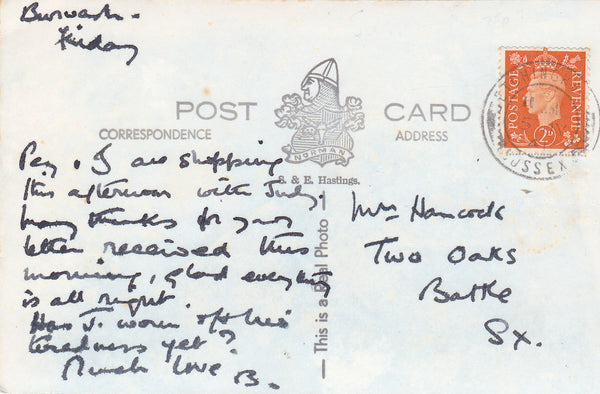 Burwash -
Friday
POST CARD
CORRESPONDENCE
ADDRESS
NORMAN
S. & E. Hastings.
This is a Real Photo
POSTAGE
REVENUE
2D
SUSSEX
Peg & I are shopping
this afternoon with Judy,
many thanks for your
letter received this
morning, glad everything
is all right.
Has J. worn off his
tiredness yet?
Much love B.
Mrs Hancock
Two Oaks
Battle
Sx.